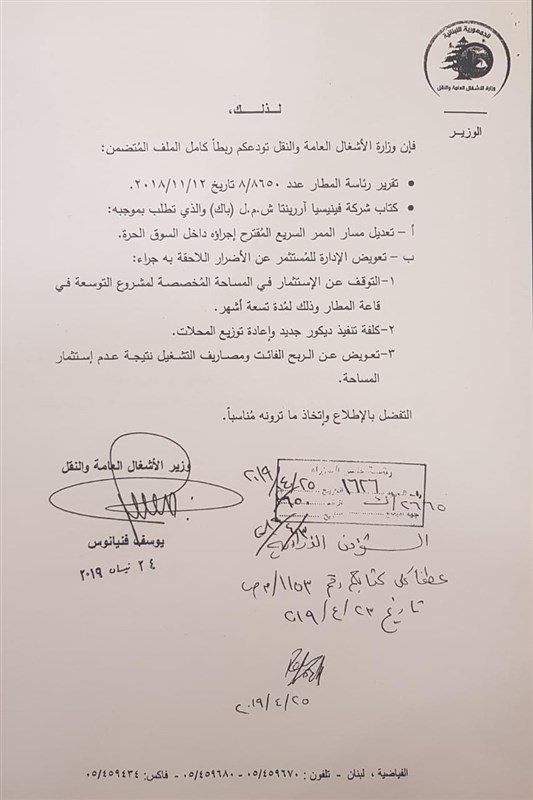 الجمهورية اللبنانية
وزارة الاشغال العامة والنقل
الوزير
لـذلـــك،
فإن وزارة الأشغال العامة والنقل تودعكم ربطاً كامل الملف المُتضمن:
• تقرير رئاسة المطار عدد ٨/٨٦٥٠ تاريخ ٢٠١٨/١١/١٢.
• كتاب شركة فينيسيا آررينتا ش.م.ل (باك) والذي تطلب بموجبه:
أ - تعديل مسار الممر السريع المُقترح إجراؤه داخل السوق الحرة.
ب - تعويض الإدارة للمُستثمر عن الأضرار اللاحقة به جراء:
١-التوقف عن الإستثمار في المساحة المُخصصة لمشروع التوسعة في
قاعة المطار وذلك لمُدة تسعة أشهر.
٢-كلفة تنفيذ ديكور جديد وإعادة توزيع المحلات.
٣-تعويض عن الربح الفائت ومصاريف التشغيل نتيجة عدم إستثمار
المساحة.
التفضل بالإطلاع وإتخاذ ما ترونه مُناسباً.
وزير الأشغال العامة والنقل
يوسف فنيانوس
٢٤ نيسان ٢٠١٩
١٦٢٦
٢٠١٩/٤/٢٥
عطفا على كتابكم رقم ١١٥٣/م ص
تاريخ ٢٠١٩/٤/٢٣
٢٠١٩/٤/٢٥
الفياضية ، لبنان - تلفون : ٠٥/٤٥٩٦٧٠ - ٠٥/٤٥٩٦٨٠ - فاكس: ٠٥/٤٥٩٤٣٤